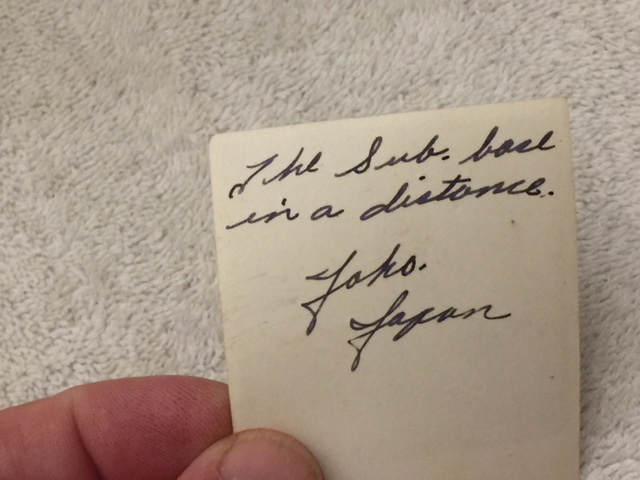 The Sub. base
in a distance.
Yoko.
Japan